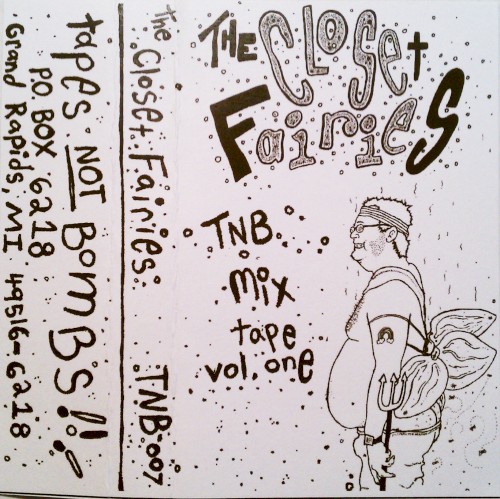 THE CLOSET
FAIRIES
TNB
mix
tape
vol. one
The Closet Fairies: TNB-007
tapes NOT BOMBS!!
PO BOX 6218
Grand Rapids, MI 49516-6218